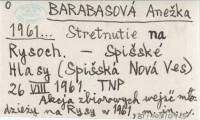 0 BARABASOVÁ Anežka
1961... Stretnutie na
Rysoch. – Spišské
Hlasy (Spišská Nová Ves)
26 VIII 1961 TNP
Akcja zbiorowych wejść mło
dzieży na Rysy w 1961